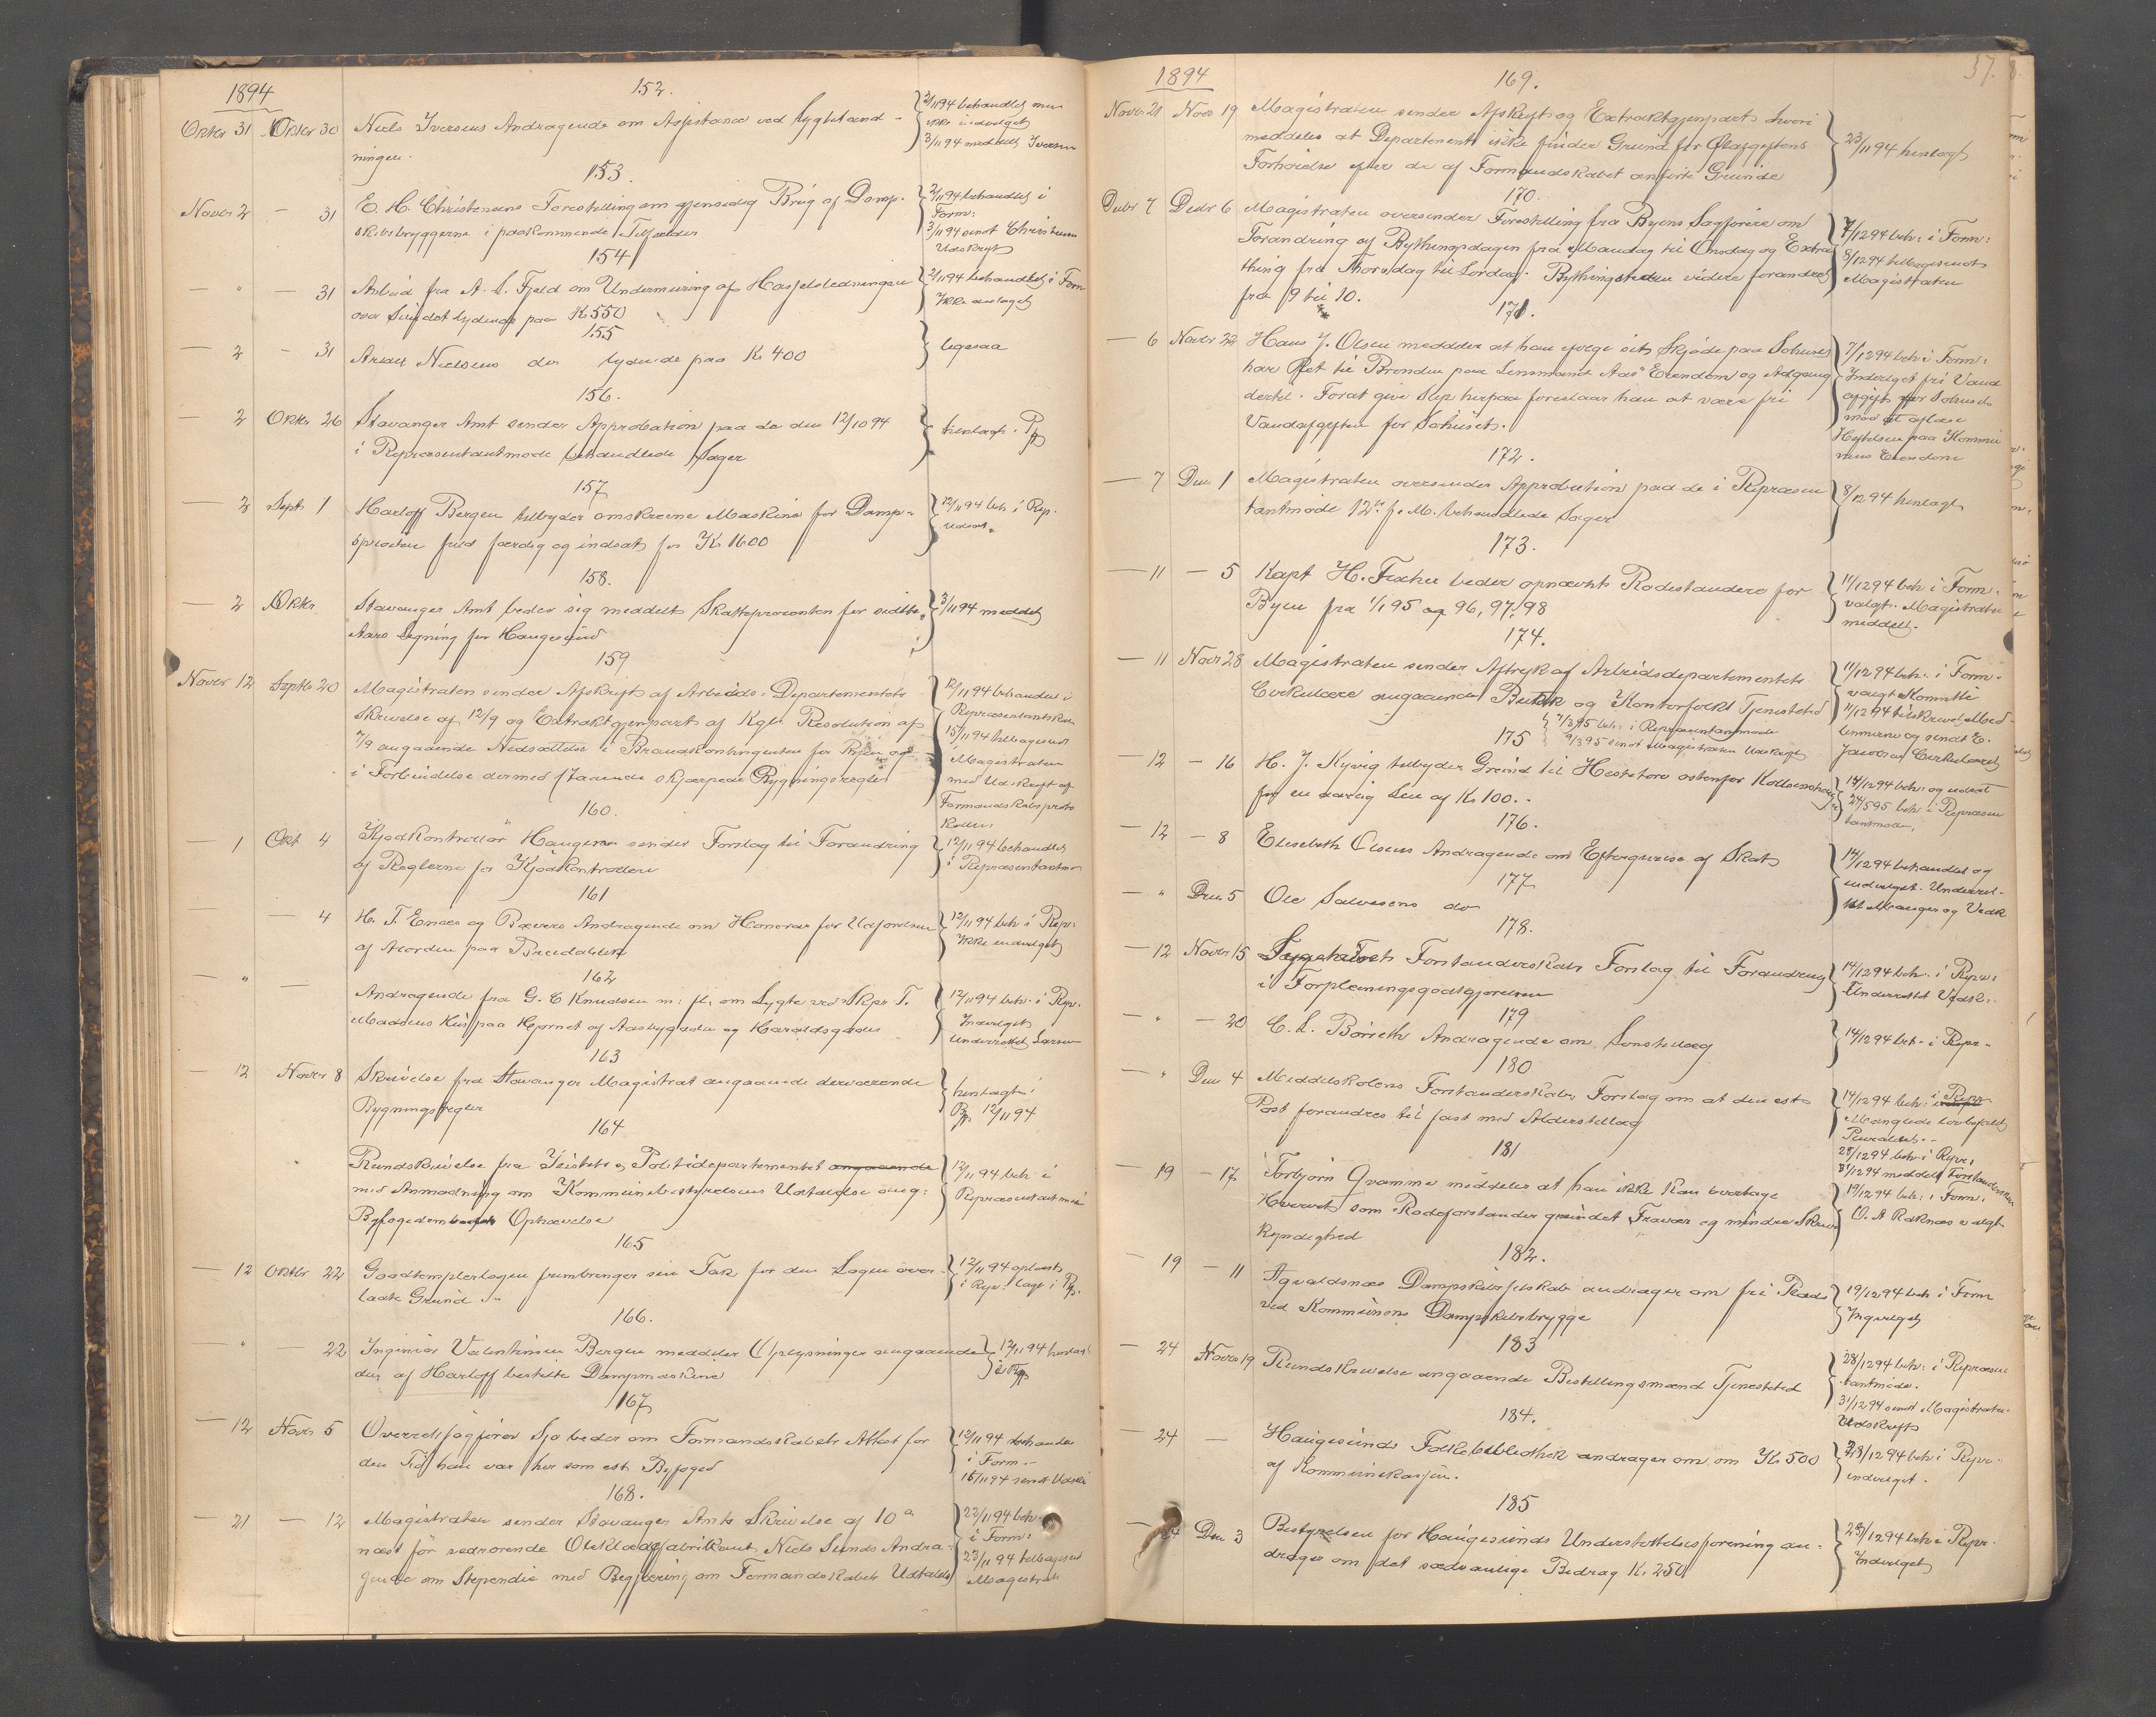 1894
152.
Oktbr 31 Oktbr 30 Niels Iversens Andragende om Assistance ved Lygtetænd-
ningen.
2/11 94 behandlet men
ikke indvilget
3/11 94 meddelt Iversen
153.
Novbr 2 — 31 E. H. Christensens Forestilling om gjensidig Brug af Damp-
skibsbryggerne i paakommende Tilfælder
2/11 94 behandlet i
Form:
3/11 94 sendt Christensen
Udskrift
154
— " — 31 Anbud fra A. S. Fjeld om Undermuring af Hasselsledningen
over Sundet lydende paa Kr 550
2/11 94 behandlet i Form
Ikke antaget
155
— 2 — 31 Nielsens do lydende paa Kr 400
ligesaa
156.
— 2 Oktbr 26 Stavanger Amt sender Approbation paa de den 12/10 94
i Repræsentantmøde behandlede Sager
157
— 2 Septb 1 Harloff Bergen tilbyder omskrevne Maskine for Damp-
sprøiten fuld færdig og indsat for Kr. 1600
12/11 94 beh i Rep.
Udsat.
158.
— 2 Oktbr. Stavanger Amt beder sig meddelt Skatteprocenten for sidste
Aars Ligning for Haugesund
3/11 94 meddelt
159
Novbr 12 Septbr 20 Magistraten sender Afskrift af Arbeids-Departementets
Skrivelse af 12/9 og Extraktgjenpart af Kgl. Resolution af
7/9 angaaende Nedsættelse i Brandkontingenten for Byen og
i Forbindelse dermed staaende skjærpede Bygningsregler
12/11 94 behandlet i
Repræsentantskab
15/11 94 tilbagesendt
Magistraten
med Udskrift af
Formandskabsproto
kollen.
160.
— 1 Okt 4 Kjødkontrollør Haugeren sender Forslag til Forandring
af Reglerne for Kjødkontrollen
12/11 94 behandlet
i Repræsentantm
161
— 4 H. T. Ennes og Bævers Andragende om Honorar for Udførelsen
af Akorden paa Breidablik
12/11 94 beh i Repr:
Ikke indvilget
162
— " — Andragende fra G. C Knudsen m: fl. om Lygte ved Skpr T.
Madsens Hus paa Hjørnet af Aasbygaden og Haraldsgaden
12/11 94 beh. i Rep.
Indvilget
Underrettet Larsen
163
— 12 Novbr 8 Skrivelse fra Stavanger Magistrat angaaende derværende
Bygningsregler
henlagt i
Pp 12/11 94
164
Rundskrivelse fra Justits og Politidepartementet angaaende
med Anmodning om Kommunebestyrelsens Udtalelse ang:
Byfogedembedets Ophævelse
12/11 94 beh i
Repræsentantmøde
165
— 12 Oktbr 22 Goodtemplerlogen frembringer sin Tak for den Logen over-
ladte Grund.
12/11 94 oplæst
i Repr. lagt i Pp.
166.
— " — 22 Ingeniør Valentinsen Bergen meddeler Oplysninger angaaende
den af Harloff bestilte Dampmaskine
12/11 94 henlagt
i Pp
167
— 12 Novbr 5 Overretssagfører Sjo beder om Formandskabets Attest for
den Tid han var her som cst Byfoged
12/11 94 behandlet
i Form.
16/11 94 sendt Udskr
168.
— 21 — 12 Magistraten sender Stavanger Amts Skrivelse af 10de
næst før vedrørende Olieklædefabrikant Niels Lunds Andra-
gende om Stipendie med Begjæring om Formandskabets Udtalelse
22/11 94 beh.
i Form:
23/11 94 tilbagesend
Magistrat
37.
1894
169.
Novbr 21 Novb 19 Magistraten sender Afskrift og Extraktgjenpart hvori
meddeles at Departementet ikke finder Grund for Ølafgiftens
Forhøielse efter de af Formandskabet anførte Grunde
23/11 94 henlagt
170.
Decbr 7 Decbr 6 Magistraten oversender Forestilling fra Byens Sagførere om
Forandring af Bythingsdagen fra Mandag til Onsdag og Extra
thing fra Thorsdag til Lørdag. Bythingstiden videre forandres
fra 9 til 10.
7/12 94 beh: i Form:
8/12 94 tilbagesendt
Magistraten
171.
— 6 Novbr 22 Hans J. Olsen meddeler at han ifølge sit Skjøde paa Søhuset
har Ret til Brønden paa Lensmand Aas' Eiendom og Adgang
dertil. Forat give Slip herpaa foreslaar han at være fri
Vandafgiften for Søhuset.
7/12 94 beh i Form:
Indvilget fri Vand
afgift for Søhuset
mod at aflæse
Heftelsen paa Kommu
nens Eiendom
172.
— 7 Decb 1 Magistraten oversender Approbation paa de i Repræsen
tantmøde 12te f. M. behandlede Sager
8/12 94 henlagt
173.
— 11 — 5 Kapt H. Fischer beder opnævnt Rodestandere for
Byen fra 1/1 95 og 96, 97, 98
11/12 94 beh i Form.
valgt. Magistraten
meddelt.
174.
— 11 Novbr 28 Magistraten sender Aftryk af Arbeidsdepartementets
Cirkulære angaaende Butik og Kontorfolks Tjenestetid
7/3 95 beh: i Repræsentantmøde
9/3 95 sendt Magistraten Udskrift
11/12 94 beh: i Form.
valgt Komite
11/12 94 tilskrevet Med-
lemmerne og sendt E.
Jacobsen Cirkulæret
175
— 12 — 16 H. J. Kyvig tilbyder Grund til Hestetorv østenfor Kolbenshaug
for en aarlig Leie af Kr 100.
14/12 94 beh: og udsat
24/5 95 beh: i Repræsen
tantmøde.
176.
— 12 — 8 Elisebeth Olsens Andragende om Eftergivelse af Skat
14/12 94 behandlet og
indvilget. Underret-
tet Manger og Vedk
177
— " Decb 5 Ole Salvesens do
178.
— 12 Novbr 15 Sygehusets Forstanderskabs Forslag til Forandring
i Forpleiningsgodtgjørelsen
14/12 94 beh: i Repr:
Underrettet Vedk.
179
— " — 20 C. L. Børreth Andragende om Lønstillæg
14/12 94 beh. i Repr.
180
— " Decb 4 Middelskolens Forstanderskabs Forslag om at den cst
Post forandres til fast med Alderstillæg
14/12 94 beh: i Repr
Manglede lovbefalet
Pluralitet.
28/12 94 beh: i Repr:
31/12 94 meddelt Forstanderskab
181
— 19 — 17 Torbjørn Qvamme meddeler at han ikke kan overtage
Hvervet som Rodeforstander grundet Fravær og mindre Skriv
kyndighed
19/12 94 beh: i Form:
O. A Raknæs valgt
182.
— 19 — 11 Agvaldsnæs Dampskibsselskab andrager om fri Plads
ved Kommunens Dampskibsbrygge
19/12 94 beh i Form
Indvilget
183
— 24 Novbr 19 Rundskrivelse angaaende Bestillingsmænd Tjenestetid
28/12 94 beh: i Repræsen
tantmøde.
31/12 94 sendt Magistraten
Udskrift
184.
— 24 — Haugesunds Folkebibliothek andrager om om Kr 500
af Kommunekassen.
28/12 94 beh i Repr.
indvilget.
185
— 24 Decb 3 Bestyrelsen for Haugesunds Understøttelsesforening an-
drager om det sædvanlige Bidrag Kr 250
28/12 94 beh i Repr.
Indvilget